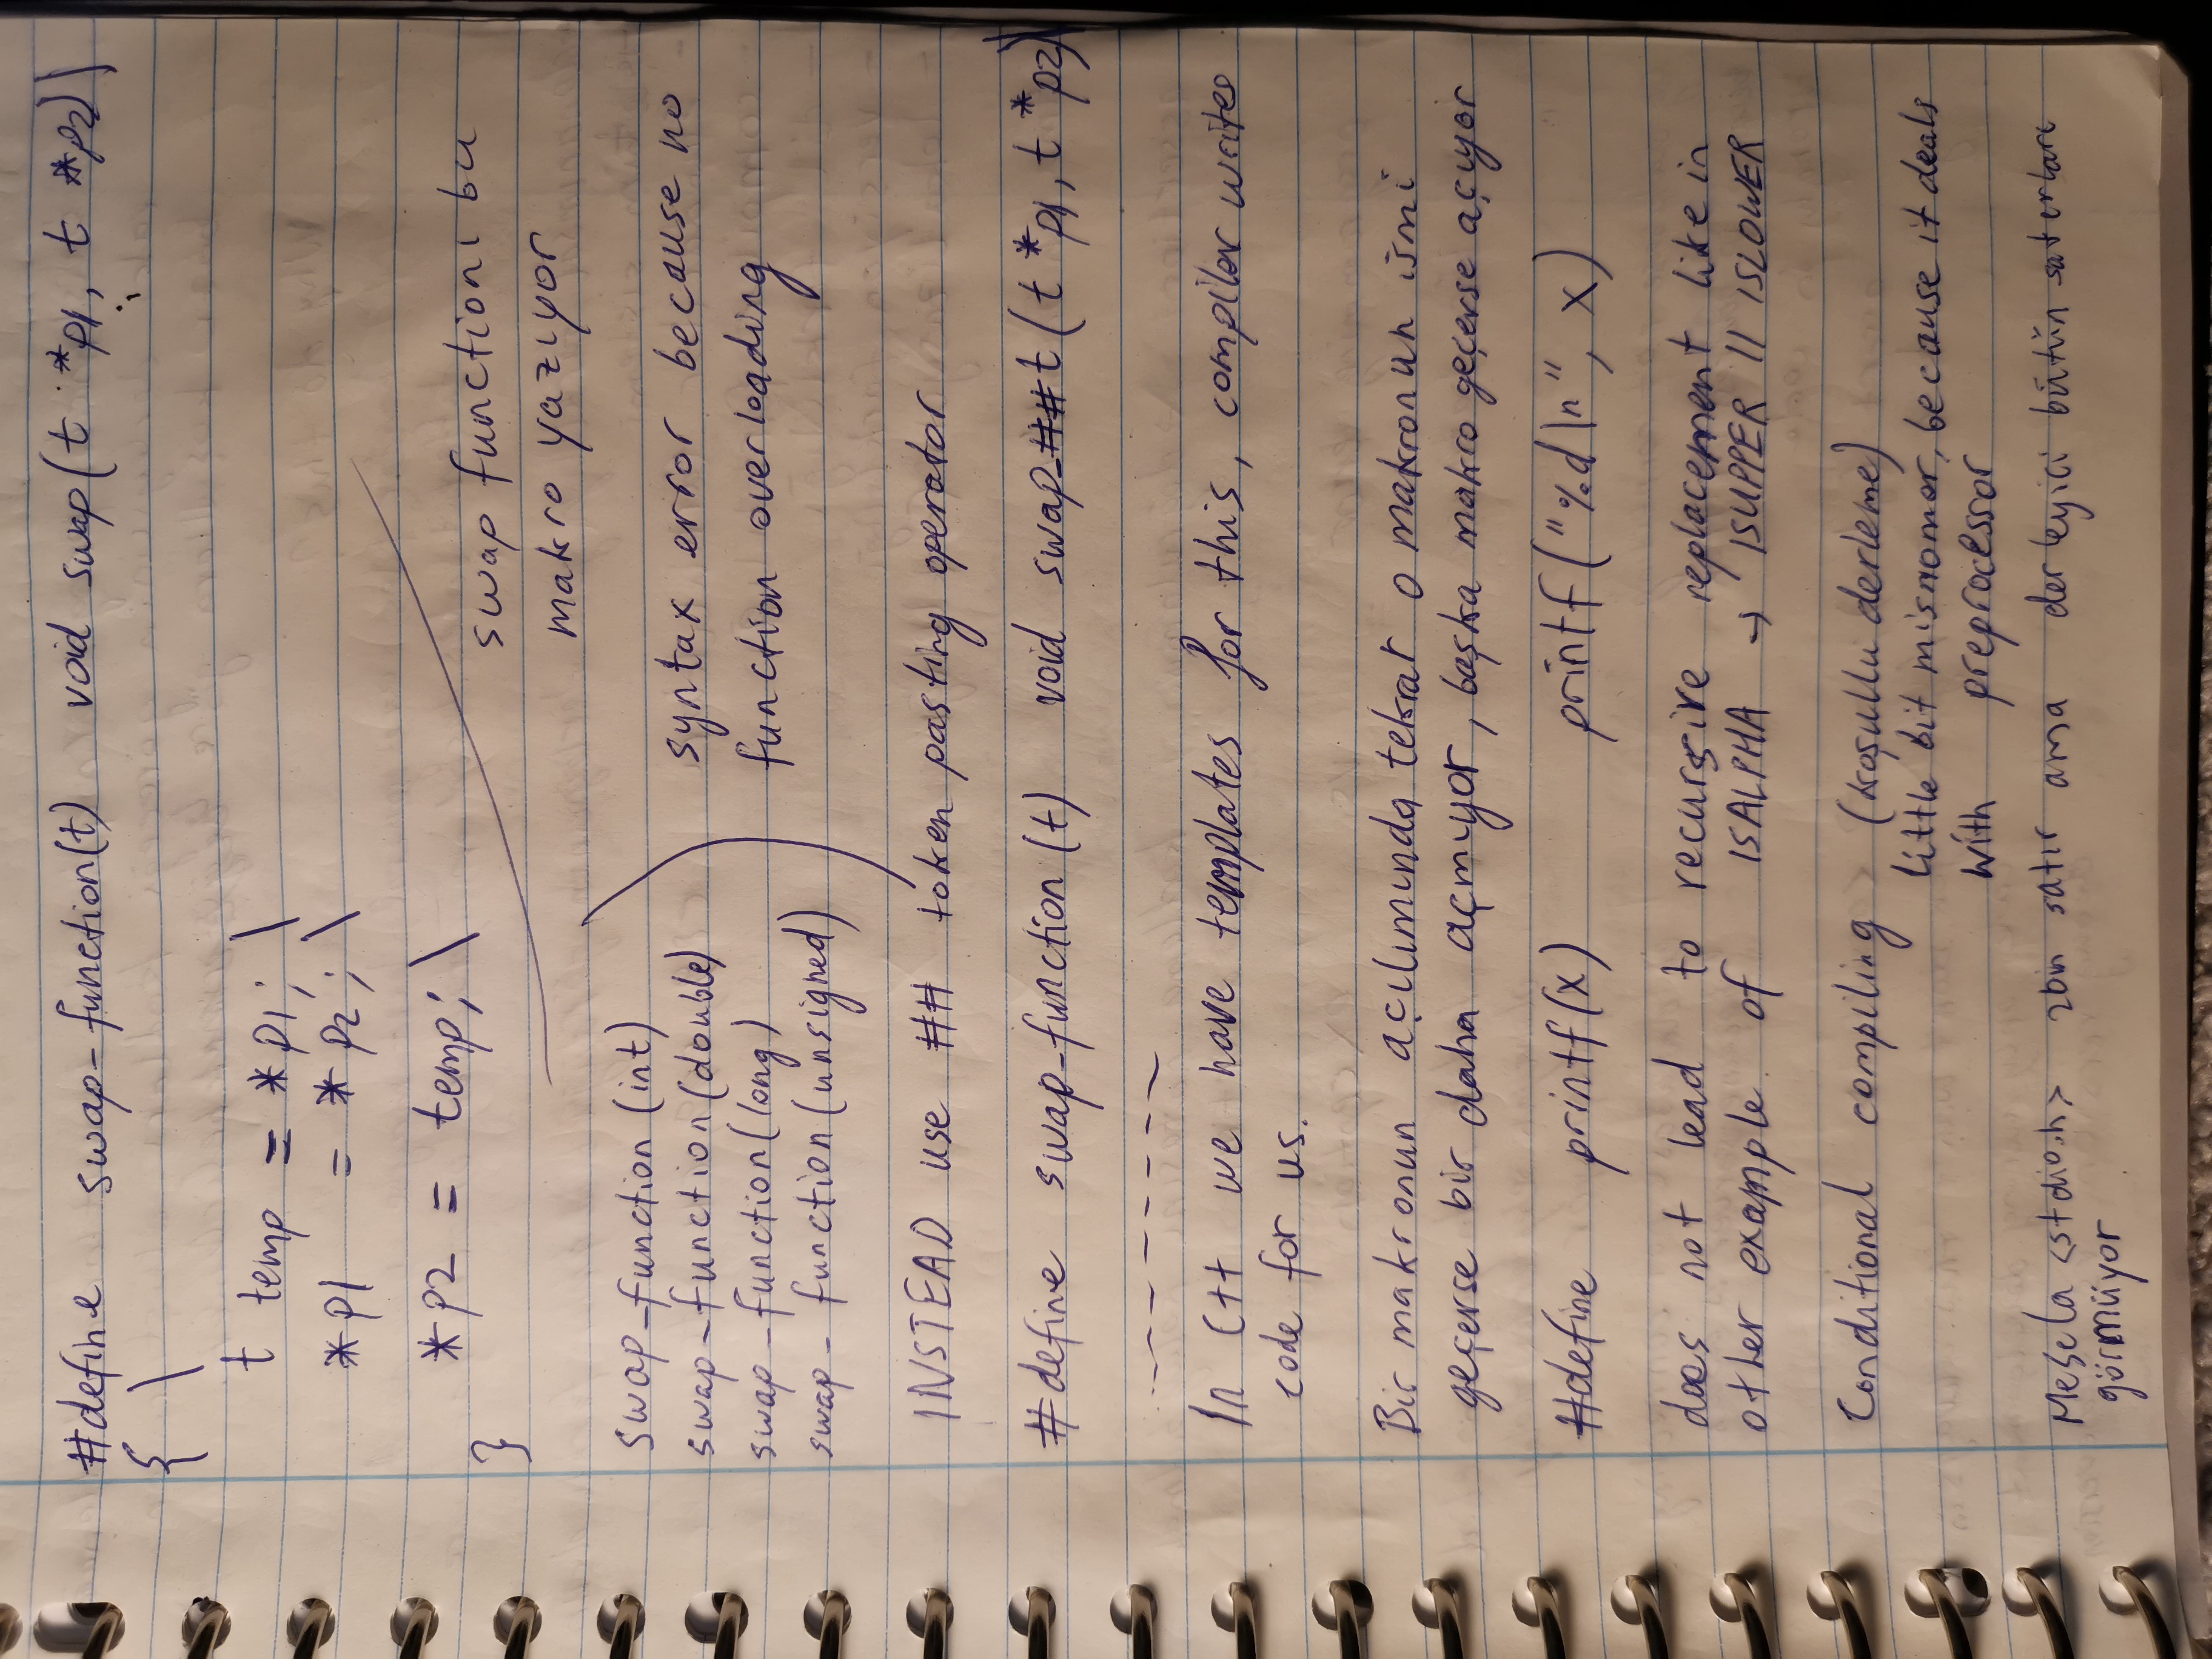 #define swap_function(t) void swap(t *p1, t *p2)\
{ \
t temp = *p1; \
*p1 = *p2; \
*p2 = temp; \
}
swap functionı bu
makro yazıyor
swap_function(int)
swap_function(double)
swap_function(long)
swap_function(unsigned)
syntax error because no
function overloading
INSTEAD use ## token pasting operator
#define swap_function(t) void swap_##t(t *p1, t *p2)\
In C++ we have templates for this, compiler writes
code for us.
Bir makronun açılımında tekrar o makronun ismi
geçerse bir daha açmıyor, başka makro geçerse açıyor
#define printf(x) printf("%d\n", x)
does not lead to recursive replacement like in
other example of ISALPHA → ISUPPER || ISLOWER
Conditional compiling (koşullu derleme)
little bit misnomer, because it deals
with preprocessor
Mesela <stdio.h> 2bin satır ama derleyici bütün satırları
görmüyor